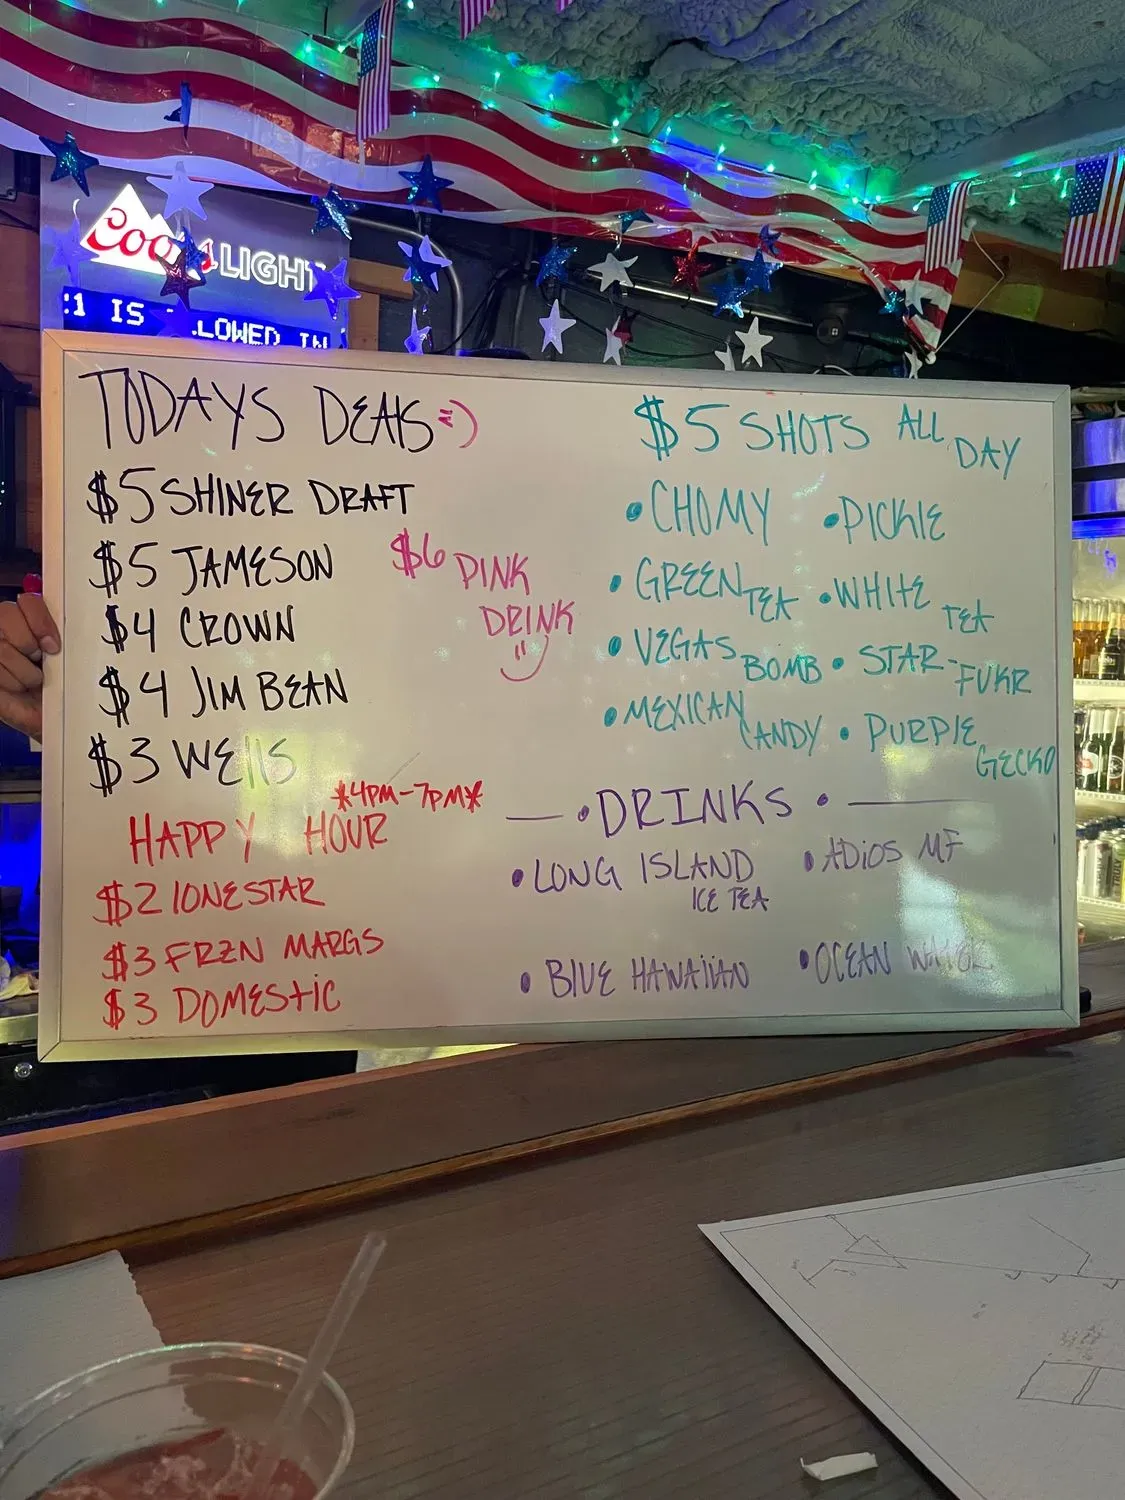 Coors LIGHT
:1 IS LOWED IN
TODAYS DEALS =)
$5 SHINER DRAFT
$5 JAMESON
$4 CROWN
$4 JIM BEAN
$3 WELLS
$6 PINK
DRINK
*4PM-7PM*
HAPPY HOUR
$2 LONESTAR
$3 FRZN MARGS
$3 DOMESTIC
$5 SHOTS ALL DAY
• CHOMY • PICKLE
• GREEN TEA • WHITE TEA
• VEGAS BOMB • STAR-FUKR
• MEXICAN CANDY • PURPLE GECKO
— • DRINKS • —
• LONG ISLAND ICE TEA • ADiOS MF
• BLUE HAWAiiAN • OCEAN WATER